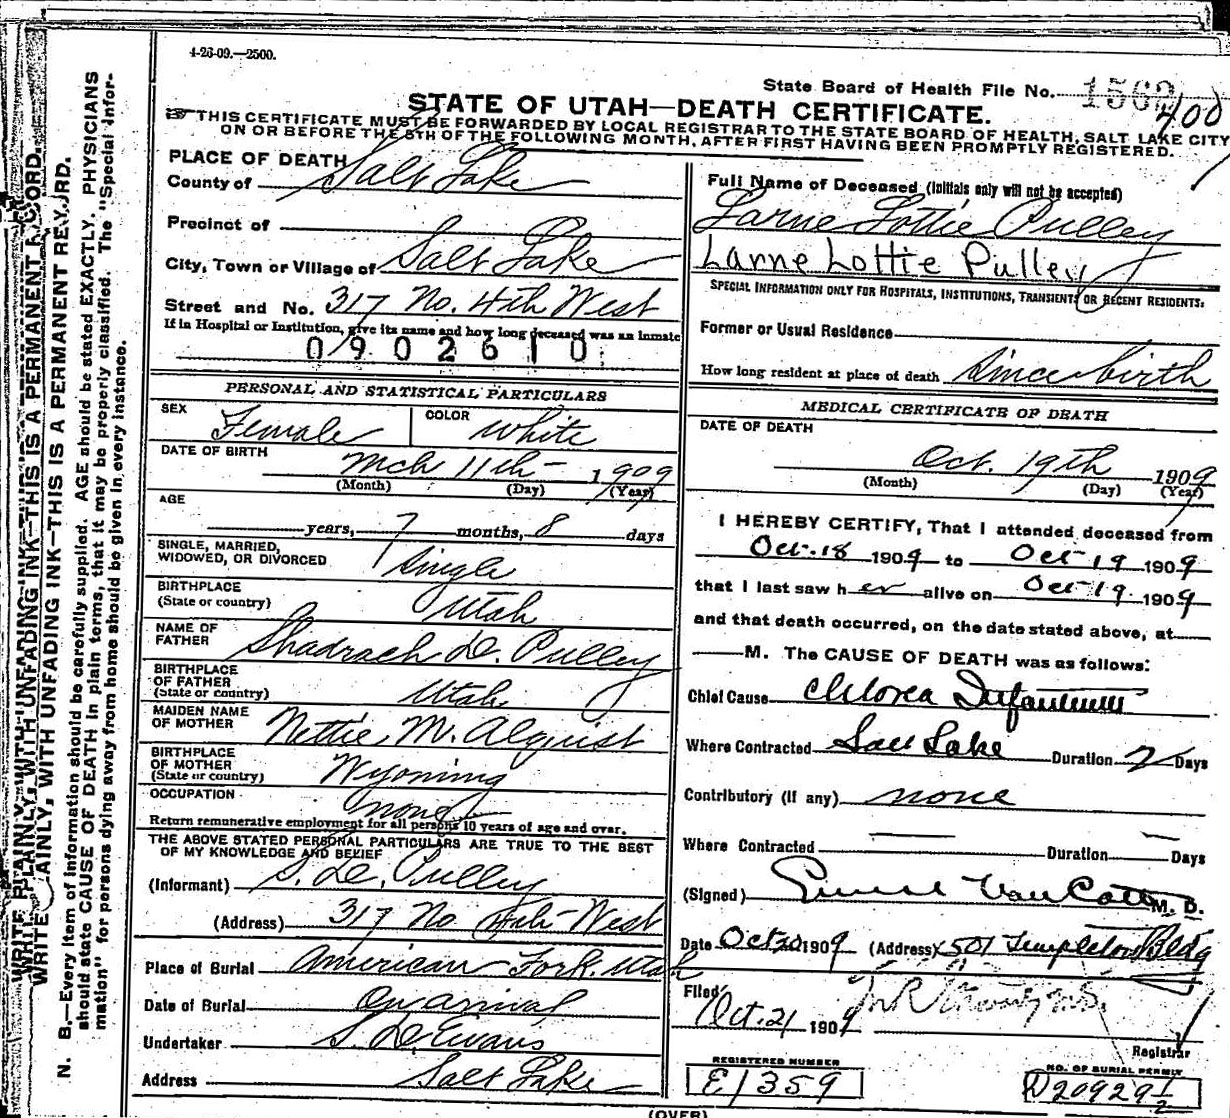 4-26-09.—2500.
State Board of Health File No. 1562
400
STATE OF UTAH—DEATH CERTIFICATE.
THIS CERTIFICATE MUST BE FORWARDED BY LOCAL REGISTRAR TO THE STATE BOARD OF HEALTH, SALT LAKE CITY
ON OR BEFORE THE 5TH OF THE FOLLOWING MONTH, AFTER FIRST HAVING BEEN PROMPTLY REGISTERED.
PLACE OF DEATH
County of Salt Lake
Precinct of
City, Town or Village of Salt Lake
Street and No. 317 No. 4th West
If in Hospital or Institution, give its name and how long deceased was an inmate
0902610
PERSONAL AND STATISTICAL PARTICULARS
SEX Female COLOR White
DATE OF BIRTH Mch 11th 1909
(Month) (Day) (Year)
AGE
years, 7 months, 8 days
SINGLE, MARRIED,
WIDOWED, OR DIVORCED Single
BIRTHPLACE
(State or country) Utah
NAME OF
FATHER Shadrach D. Pulley
BIRTHPLACE
OF FATHER
(State or country) Utah
MAIDEN NAME
OF MOTHER Nettie M. Alquist
BIRTHPLACE
OF MOTHER
(State or country) Wyoming
OCCUPATION none
Return remunerative employment for all persons 10 years of age and over.
THE ABOVE STATED PERSONAL PARTICULARS ARE TRUE TO THE BEST
OF MY KNOWLEDGE AND BELIEF
(Informant) S. D. Pulley
(Address) 317 No 4th West
Place of Burial American Fork. Utah
Date of Burial On arrival
Undertaker S. D. Evans
Address Salt Lake
Full Name of Deceased (Initials only will not be accepted)
Larne Lottie Pulley
Larne Lottie Pulley
SPECIAL INFORMATION ONLY FOR HOSPITALS, INSTITUTIONS, TRANSIENTS OR RECENT RESIDENTS:
Former or Usual Residence
How long resident at place of death Since birth
MEDICAL CERTIFICATE OF DEATH
DATE OF DEATH
Oct. 19th 1909
(Month) (Day) (Year)
I HEREBY CERTIFY, That I attended deceased from
Oct. 18 1909 to Oct 19 1909
that I last saw her alive on Oct 19. 1909
and that death occurred, on the date stated above, at
M. The CAUSE OF DEATH was as follows:
Chief Cause Chlorea Infantum
Where Contracted Salt Lake Duration 2 Days
Contributory (If any) none
Where Contracted Duration Days
(Signed) Van Cott M. D.
Date Oct 20 1909 (Address) 501 Templeton Bldg
Filed
Oct. 21 1909
Registrar
REGISTERED NUMBER
E1359
NO. OF BURIAL PERMIT
D20929½
(OVER)
WRITE PLAINLY, WITH UNFADING INK—THIS IS A PERMANENT RECORD.
N. B.—Every item of information should be carefully supplied. AGE should be stated EXACTLY. PHYSICIANS
should state CAUSE OF DEATH in plain terms, that it may be properly classified. The "Special Infor-
mation" for persons dying away from home should be given in every instance.